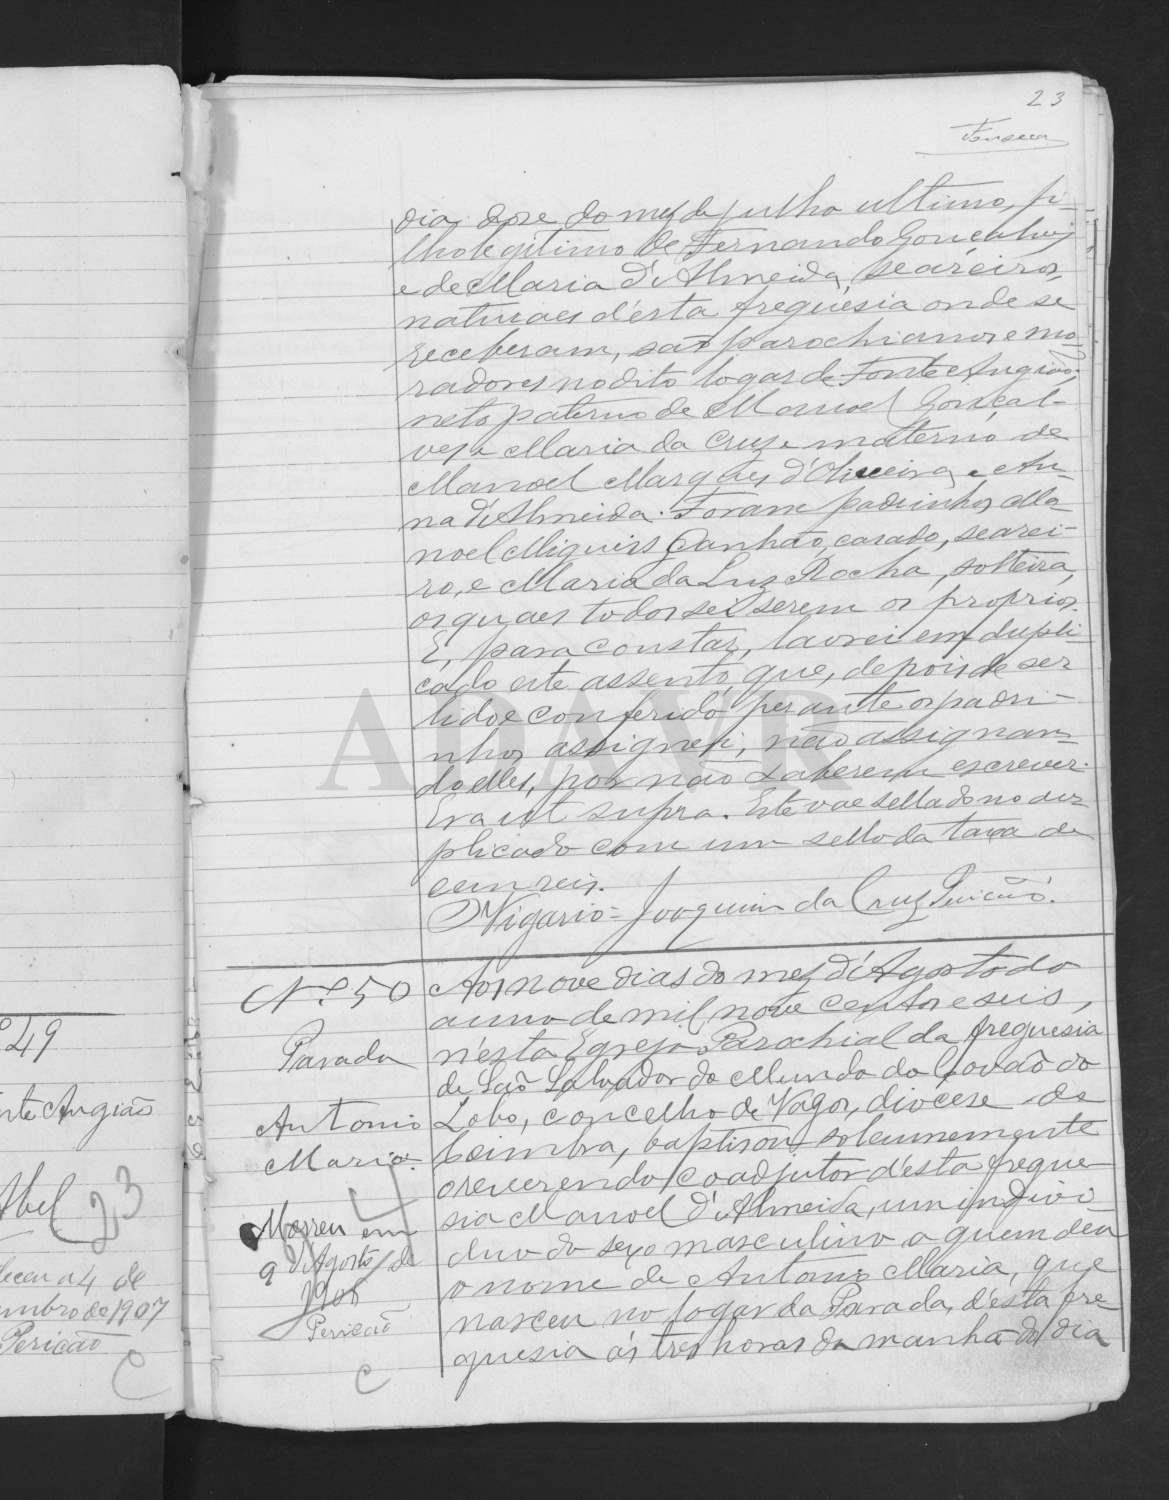 23
Fonseca
dia doze do mez de julho ultimo, fi-
lho legitimo de Fernando Gonçalves
e de Maria d'Almeida, seareiros,
naturaes d'esta freguesia onde se
receberam, são parochianos e mo-
radores no dito logar de Fonte Angião,
neto paterno de Manoel Gonçal-
ves e Maria da Cruz e materno de
Manoel Marques d'Oliveira e An-
na d'Almeida. Foram padrinhos Ma-
noel Migueis Ganhão, casado, searei-
ro, e Maria da Luz Rocha, solteira,
os quaes todos sei serem os proprios.
E, para constar, lavrei em dupli-
cado este assento, que, depois de ser
lido e conferido perante os padri-
nhos assignei, não assignan-
do elles, por não saberem escrever.
Era ut supra. Este vae sellado no du-
plicado com um sello da taxa de
cem reis.
O Vigario = Joaquim da Cruz Pericão.
Nº 50
Parada
Antonio
Maria.
Morreu em
9 d'Agosto de
1906
Pericão
C
Aos nove dias do mez d'Agosto do
anno de mil nove centos e seis,
n'esta Egreja Parochial da freguesia
de São Salvador do Mundo do Covão do
Lobo, concelho de Vagos, diocese de
Coimbra, baptisou solemnemente
o reverendo coadjutor d'esta fregue-
sia Manoel d'Almeida, um indivi-
duo do sexo masculino a quem deu
o nome de Antonio Maria, que
nasceu no logar da Parada, d'esta fre-
guesia ás tres horas da manhã do dia
º 49
nte Angião
Abel
23
leceu a 4 de
embro de 1907
Pericão
C
ADAVR